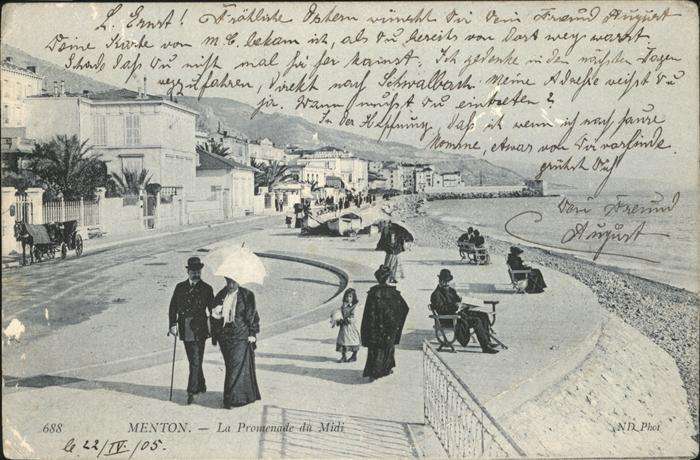 L. Ernst! Fröhliche Ostern wünscht Dir Dein Freund August
Deine Karte von M.C. bekam ich, als Du bereits von dort weg warst
Schade daß Du nicht mal hierher kamst. Ich gedenke in den nächsten Tagen
wegzufahren, direkt nach Schwalbach. Meine Adresse weißt Du
ja. Wann mußt Du eintreten?
In der Hoffnung, daß ich wenn ich nach Hause
komme, etwas von Dir vorfinde.
grüßt Dich
Dein Freund
August
688 MENTON. — La Promenade du Midi
ND Phot
le 22/IV/05.